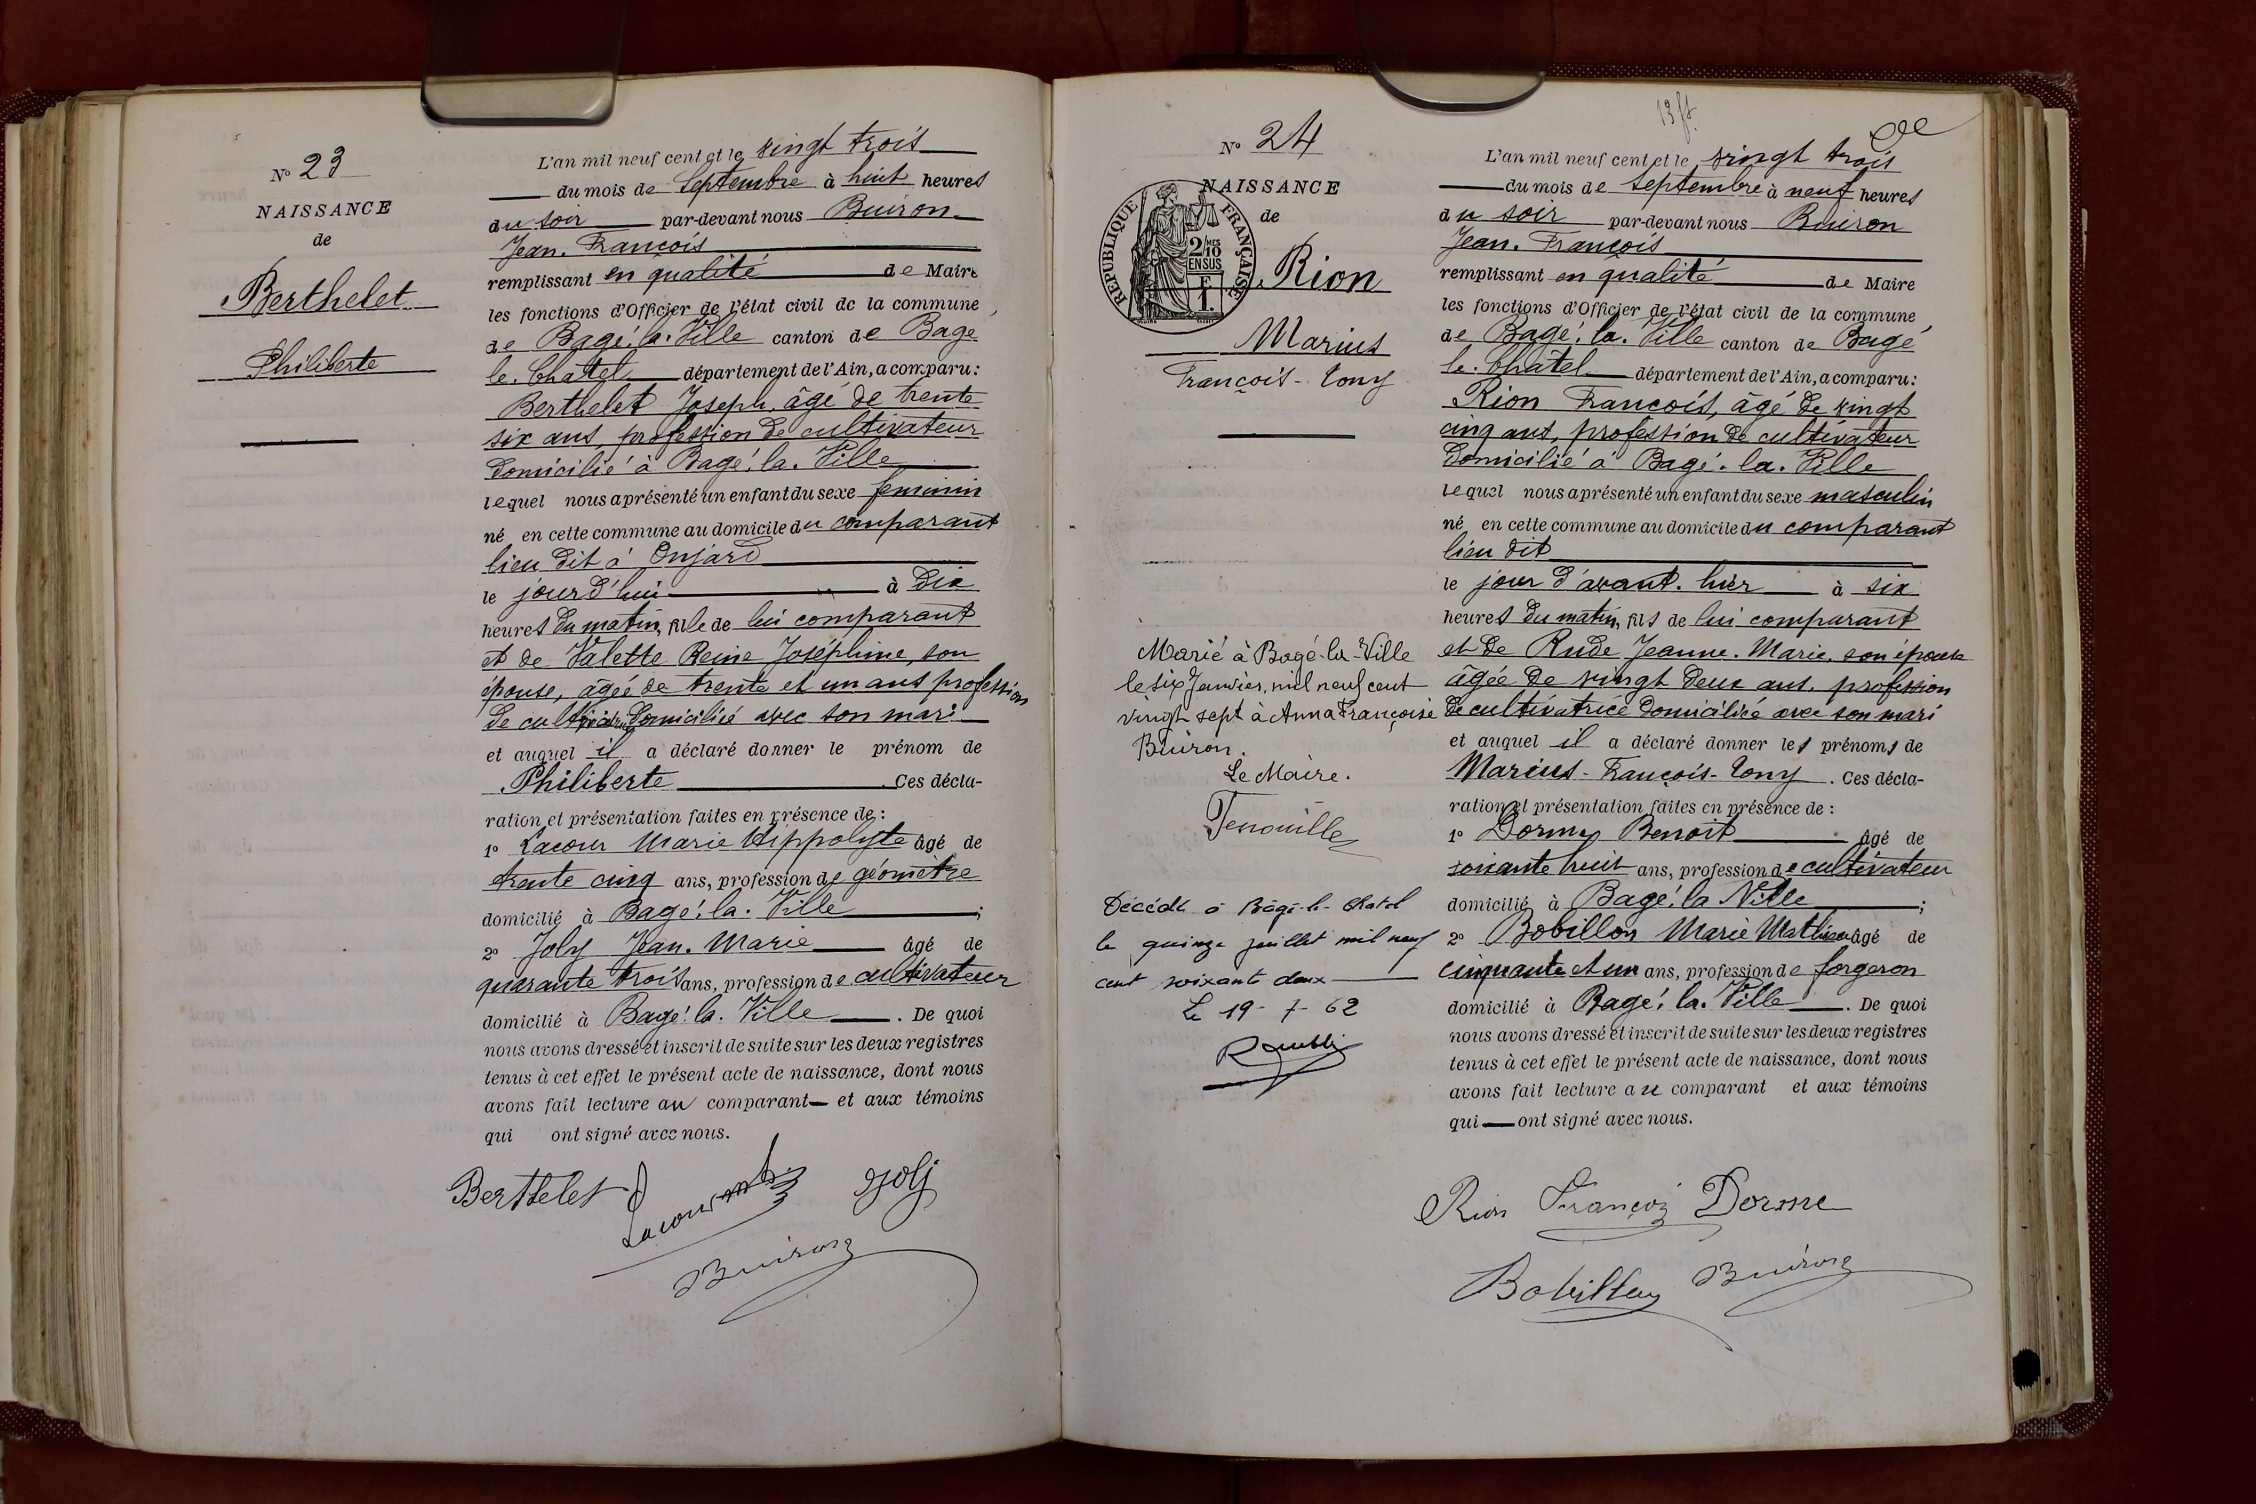 N° 23
NAISSANCE
de
Berthelet
Philiberte
L'an mil neuf cent et le vingt trois
du mois de Septembre à huit heures
du soir par-devant nous Buiron
Jean. François
remplissant en qualité de Maire
les fonctions d'Officier de l'état civil de la commune
de Bagé. la. Ville canton de Bagé
le. Châtel département de l'Ain, a comparu :
Berthelet Joseph, âgé de trente
six ans, profession de cultivateur
domicilié à Bagé. la. Ville
lequel nous a présenté un enfant du sexe feminin
né en cette commune au domicile du comparant
lieu dit à Onjard
le jourd'hui à dix
heures du matin, fille de lui comparant
et de Valette Reine Joséphine, son
épouse, âgée de trente et un ans profession
de domicilié avec son mari
et auquel il a déclaré donner le prénom de
Philiberte Ces décla-
ration et présentation faites en présence de :
1° Lacour Marie Hippolyte âgé de
trente cinq ans, profession de géomètre
domicilié à Bagé. la. Ville ;
2° Joly Jean. Marie âgé de
quarante trois ans, profession de cultivateur
domicilié à Bagé. la. Ville . De quoi
nous avons dressé et inscrit de suite sur les deux registres
tenus à cet effet le présent acte de naissance, dont nous
avons fait lecture au comparant et aux témoins
qui ont signé avec nous.
Berthelet J Lacour Joly
Buiron
13 ft
N° 24
NAISSANCE
de
REPUBLIQUE FRANÇAISE
2/10 MES
EN SUS
F
1.
Rion
Marius
François - Tony
L'an mil neuf cent et le vingt trois
du mois de Septembre à neuf heures
du soir par-devant nous Buiron
Jean. François
remplissant en qualité de Maire
les fonctions d'Officier de l'état civil de la commune
de Bagé. la. Ville canton de Bagé
le. Châtel département de l'Ain, a comparu :
Rion François, âgé de vingt
cinq ans, profession de cultivateur
domicilié à Bagé. la. Ville
lequel nous a présenté un enfant du sexe masculin
né en cette commune au domicile du comparant
lieu dit
le jour d'avant. hier à six
heures du matin, fils de lui comparant
et de Rude Jeanne. Marie. son épouse
âgée de vingt deux ans. profession
de cultivatrice domiciliée avec son mari
et auquel il a déclaré donner les prénoms de
Marius - François - Tony . Ces décla-
ration et présentation faites en présence de :
1° Dormy Benoit âgé de
soixante huit ans, profession de cultivateur
domicilié à Bagé. la Ville ;
2° Bobillon Marie Mathieu âgé de
cinquante et un ans, profession de forgeron
domicilié à Bagé. la. Ville . De quoi
nous avons dressé et inscrit de suite sur les deux registres
tenus à cet effet le présent acte de naissance, dont nous
avons fait lecture au comparant et aux témoins
qui ont signé avec nous.
Rion François Dorme
Bobillon Buiron
Marié à Bagé-la-Ville
le six Janvier, mil neuf cent
vingt sept à Anna Françoise
Buiron.
Le Maire.
Décédé à Bâgé-le-Chatel
le quinze juillet mil neuf
cent soixante deux
Le 19 - 7 - 62